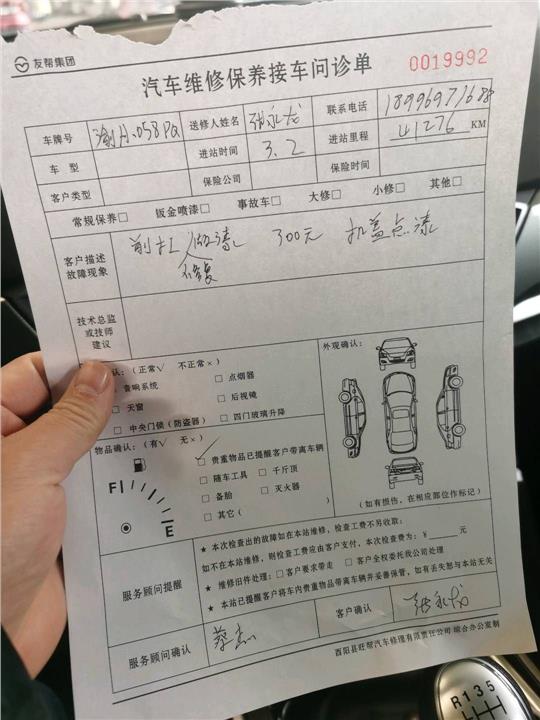 友帮集团
汽车维修保养接车问诊单 0019992
车牌号 渝H.058PQ 送修人姓名 张永龙 联系电话
车型 进站时间 3.2 进站里程 41276 KM
客户类型 保险公司 保险时间
常规保养□ 钣金喷漆□ 事故车□ 大修□ 小修□ 其他□
客户描述 故障现象 前杠 做漆 300元 机盖点漆
修复
技术总监 或技师 建议
认：（正常√ 不正常×） 外观确认：
音响系统 □ 点烟器
□ 天窗 □ 后视镜
□ 中央门锁（防盗器） □ 四门玻璃升降
物品确认：（有√ 无×）
□ 贵重物品已提醒客户带离车辆
□ 随车工具 □ 千斤顶
□ 备胎 □ 灭火器
□ 其它（ ）
F E
（如有损伤，在相应部位作标记）
服务顾问提醒
★ 本次检查出的故障如在本站维修，检查工费不另收取；
如不在本站维修，则检查工费应由客户支付，本次检查费为：￥ 元
★ 维修旧件处理：□客户要求带走 □客户全权委托我公司处理
★ 本站已提醒客户将车内贵重物品带离车辆并妥善保管，如有丢失恕与本站无关
服务顾问确认 蔡杰 客户确认 张永龙
酉阳县旺帮汽车修理有限责任公司 综合办公室制
R 1 3 5